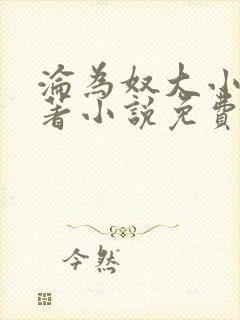 淪為奴大小
著小說免費
今然